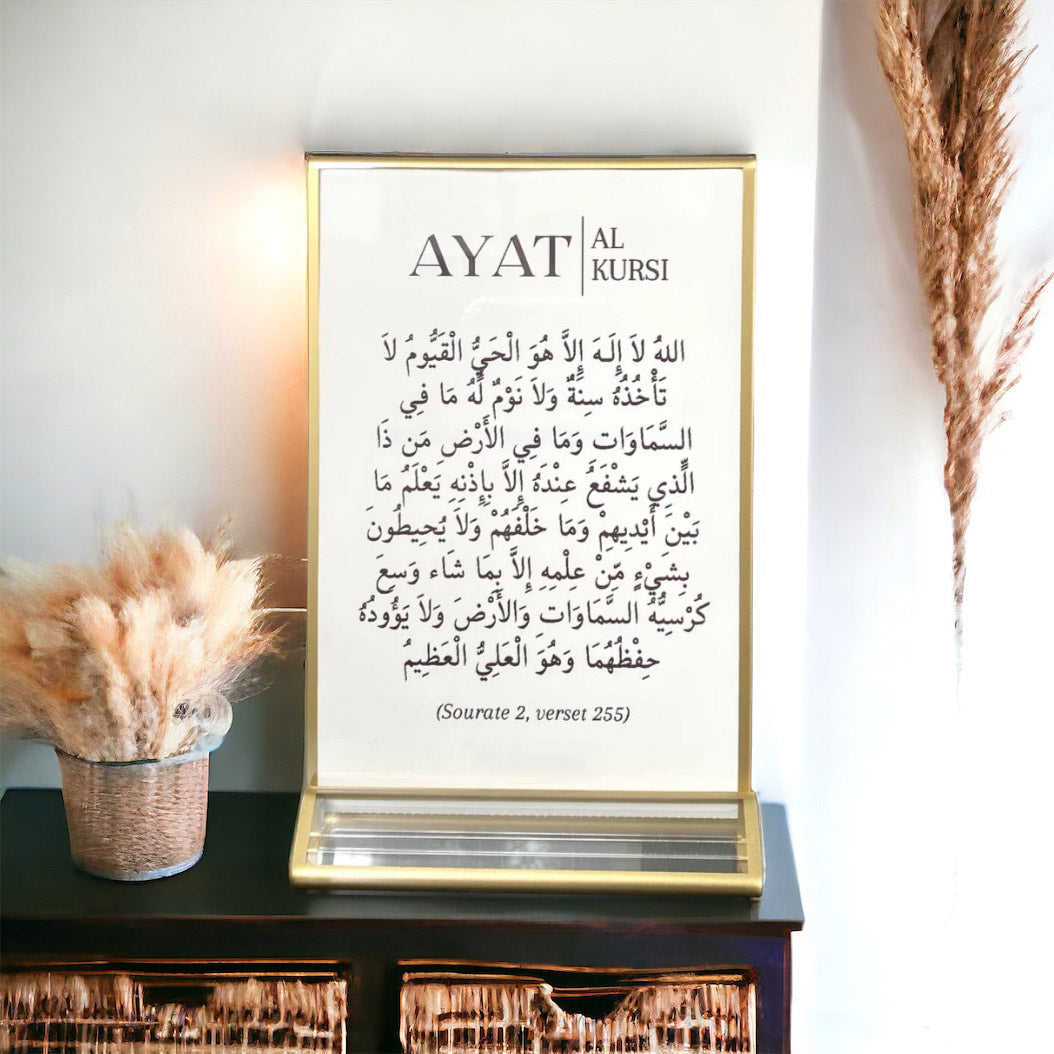 AYAT AL KURSI
اللهُ لاَ إِلَـهَ إِلاَّ هُوَ الْحَيُّ الْقَيُّومُ لاَ
تَأْخُذُهُ سِنَةٌ وَلاَ نَوْمٌ لَّهُ مَا فِي
السَّمَاوَاتِ وَمَا فِي الأَرْضِ مَن ذَا
الَّذِي يَشْفَعُ عِنْدَهُ إِلاَّ بِإِذْنِهِ يَعْلَمُ مَا
بَيْنَ أَيْدِيهِمْ وَمَا خَلْفَهُمْ وَلاَ يُحِيطُونَ
بِشَيْءٍ مِّنْ عِلْمِهِ إِلاَّ بِمَا شَاء وَسِعَ
كُرْسِيُّهُ السَّمَاوَاتِ وَالأَرْضَ وَلاَ يَؤُودُهُ
حِفْظُهُمَا وَهُوَ الْعَلِيُّ الْعَظِيمُ
(Sourate 2, verset 255)